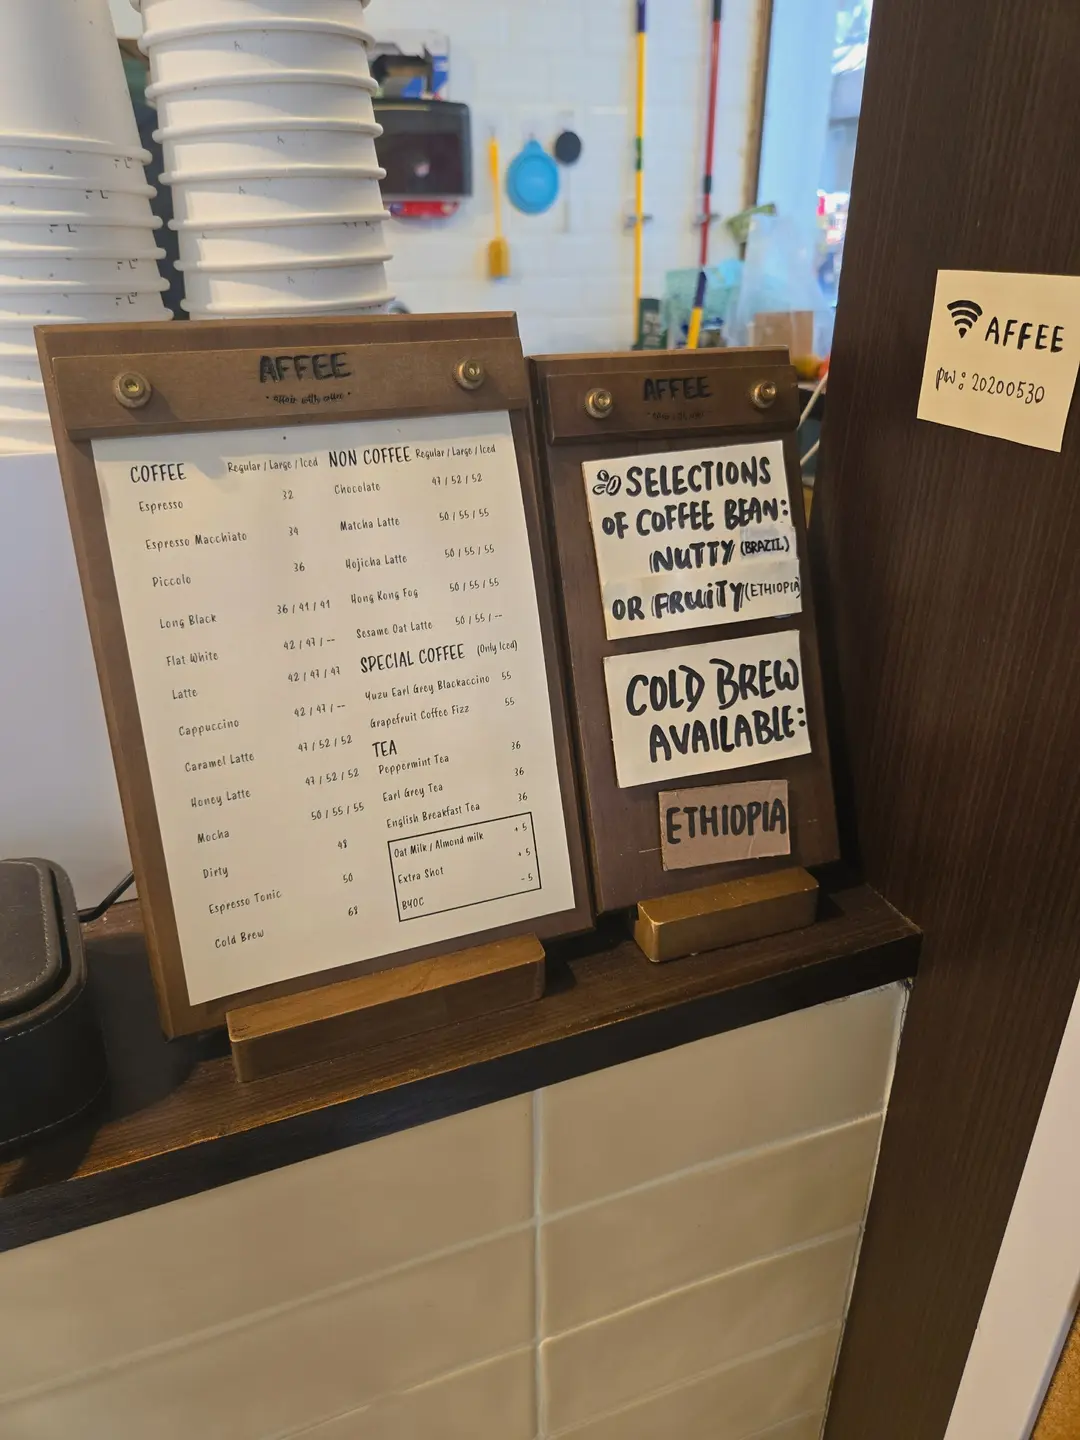 AFFEE
COFFEE Regular / Large / Iced
Espresso 32
Espresso Macchiato 34
Piccolo 36
Long Black 36 / 41 / 41
Flat White 42 / 47 / --
Latte 42 / 47 / 47
Cappuccino 42 / 47 / --
Caramel Latte 47 / 52 / 52
Honey Latte 47 / 52 / 52
Mocha 50 / 55 / 55
Dirty 48
Espresso Tonic 50
Cold Brew 68
NON COFFEE Regular / Large / Iced
Chocolate 47 / 52 / 52
Matcha Latte 50 / 55 / 55
Hojicha Latte 50 / 55 / 55
Hong Kong Fog 50 / 55 / 55
Sesame Oat Latte 50 / 55 / --
SPECIAL COFFEE (Only Iced)
Yuzu Earl Grey Blackaccino 55
Grapefruit Coffee Fizz 55
TEA
Peppermint Tea 36
Earl Grey Tea 36
English Breakfast Tea 36
Oat Milk / Almond milk + 5
Extra Shot + 5
BYOC - 5
AFFEE
SELECTIONS
OF COFFEE BEAN:
NUTTY (BRAZIL)
OR FRUITY (ETHIOPIA)
COLD BREW
AVAILABLE:
ETHIOPIA
AFFEE
pw: 20200530